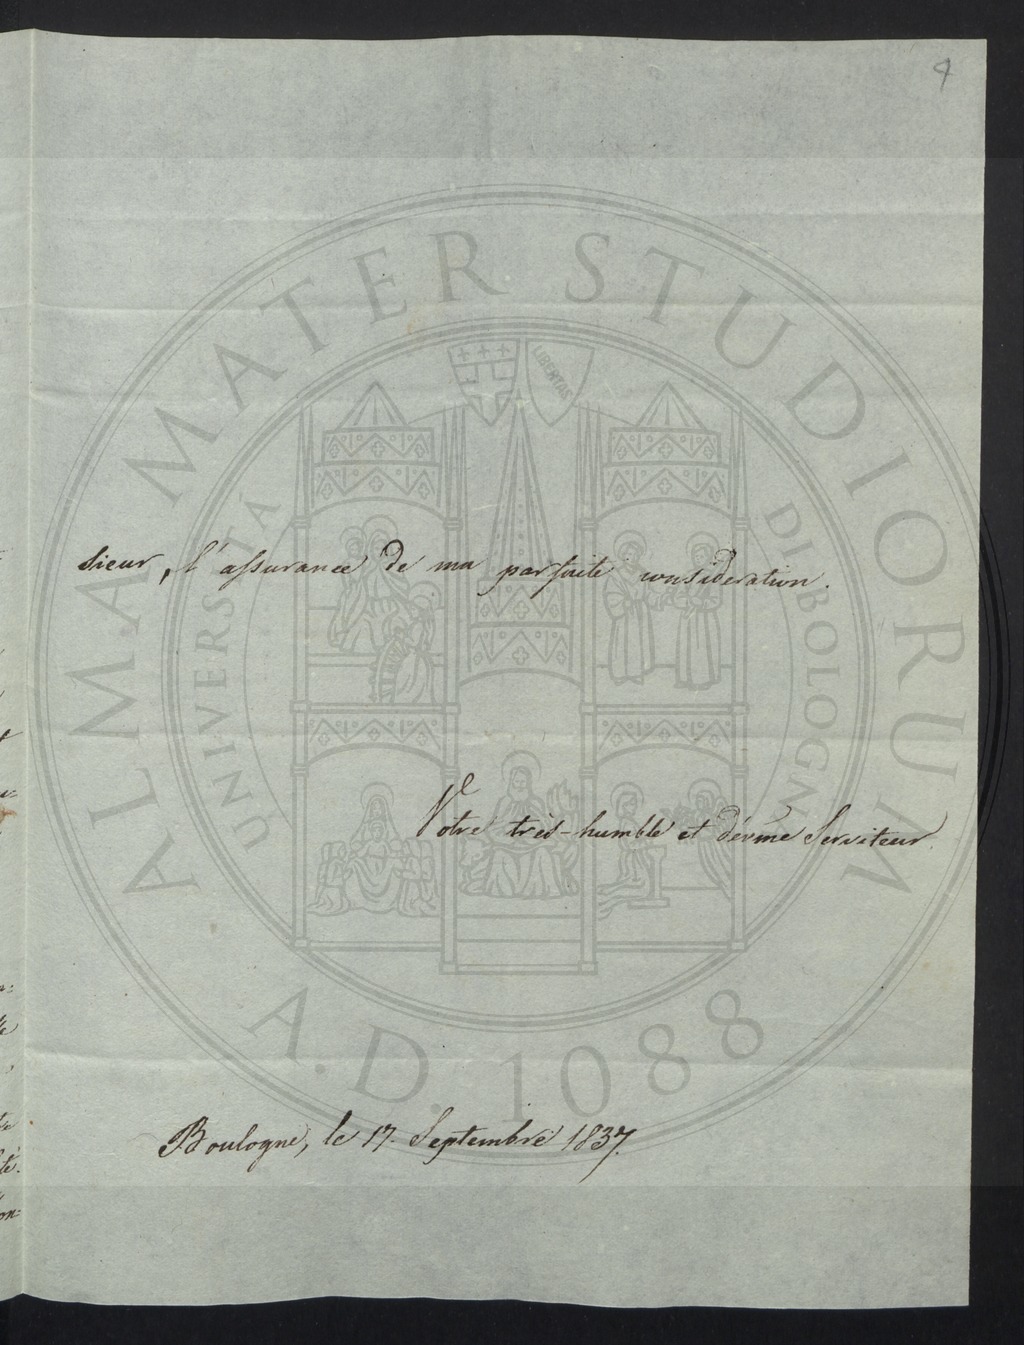 4
sieur, l'assurance de ma parfaite consideration.
Votre très-humble et Serviteur.
Boulogne, le 17. Septembre 1837.
ALMA MATER STUDIORUM
UNIVERSITÀ DI BOLOGNA
LIBERTAS
A.D. 1088